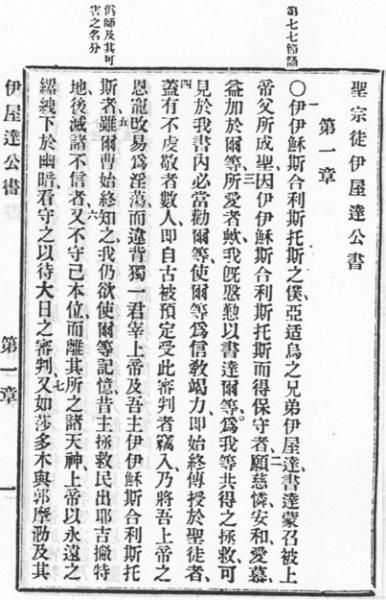 第七七節論
偽師及其可
害之名分
聖宗徒伊屋達公書
第一章
〇一伊伊穌斯合利斯托斯之僕、亞适烏之兄弟伊屋達、書達蒙召被上
帝父所成聖、因伊伊穌斯合利斯托斯而得保守者、二願慈憐、安和、愛慕、
益加於爾等、三所愛者歟、我旣慇懃以書達爾等、爲我等共得之拯救、可
見於我書內必當勸爾等、使爾等爲信教竭力、即始終傳授於聖徒者、
四蓋有不虔敬者數人、即自古被預定受此審判者、竄入、乃將吾上帝之
恩寵改易爲淫蕩、而違背獨一君宰上帝及吾主伊伊穌斯合利斯托
斯者、五雖爾曹始終知之、我仍欲使爾等記憶、昔主拯救民出耶吉撇特
地、後滅諸不信者、六又不守己本位、而離其所之諸天神、上帝以永遠之
縲絏下於幽暗、看守之以待大日之審判、七又如莎多木與郭摩泐及其
伊屋達公書 第一章 一